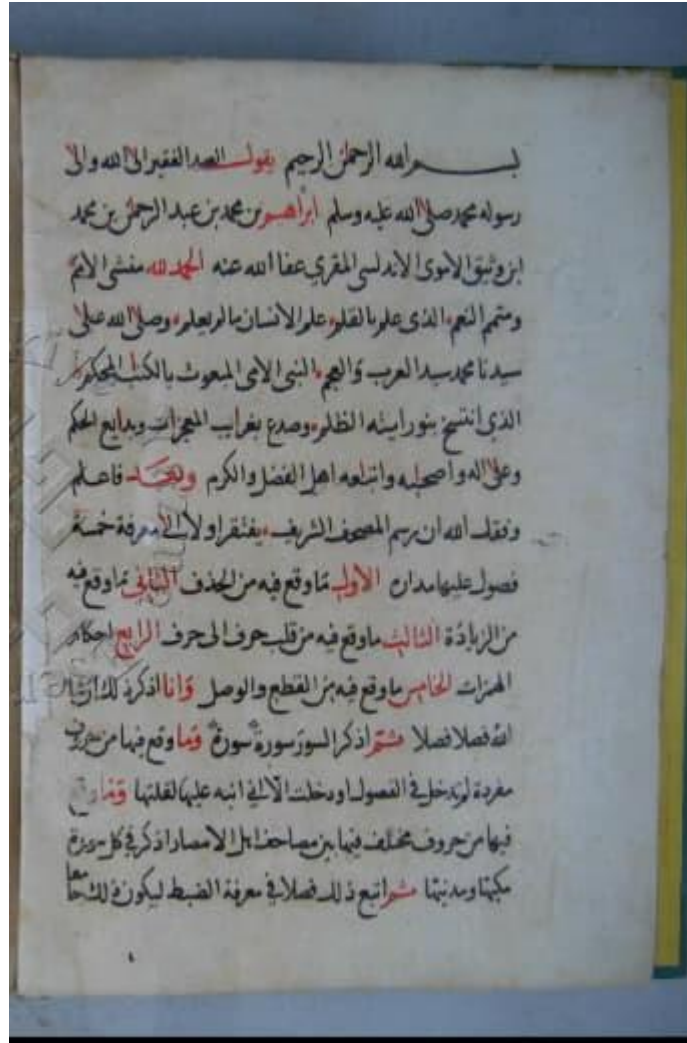 بسم الله الرحمن الرحيم يقول العبد الفقير الى الله والى
رسوله محمد صلى الله عليه وسلم ابراهيم بن محمد بن عبد الرحمن بن محمد
ابن وثيق الاموى الاندلسى المقري عفا الله عنه الحمد لله منشى الامم
ومتمم النعم الذى علم بالقلم علم الانسان ما لم يعلم وصلى الله على
سيدنا محمد سيد العرب والعجم النبى الامى المبعوث بالكتب المحكم
الذى انتسخ بنور ايته الظلم وصدع بغرايب المعجزات وبدايع الحكم
وعلى اله واصحبه واتباعه اهل الفضل والكرم وبعد فاعلم
وفقك الله ان رسم المصحف الشريف يفتقر اولا الى معرفة خمسة
فصول عليها مداره الاول ما وقع فيه من الحذف الثانى ما وقع فيه
من الزيادة الثالث ما وقع فيه من قلب حرف الى حرف الرابع احكام
الهمزات الخامس ما وقع فيه من القطع والوصل وانا اذكر ذلك ان شا
الله فصلا فصلا ثم اذكر السور سورة سورة وما وقع فيها من حروف
مفردة لم تدخل فى الفصول او دخلت الا انى انبه عليها لقلتها وما وقع
فيها من حروف مختلف فيها بين مصاحف اهل الامصار اذكر فى كل سورة
مكيها ومدنيها ثم اتبع ذلك فصلا فى معرفة الضبط ليكون ذلك جامعا